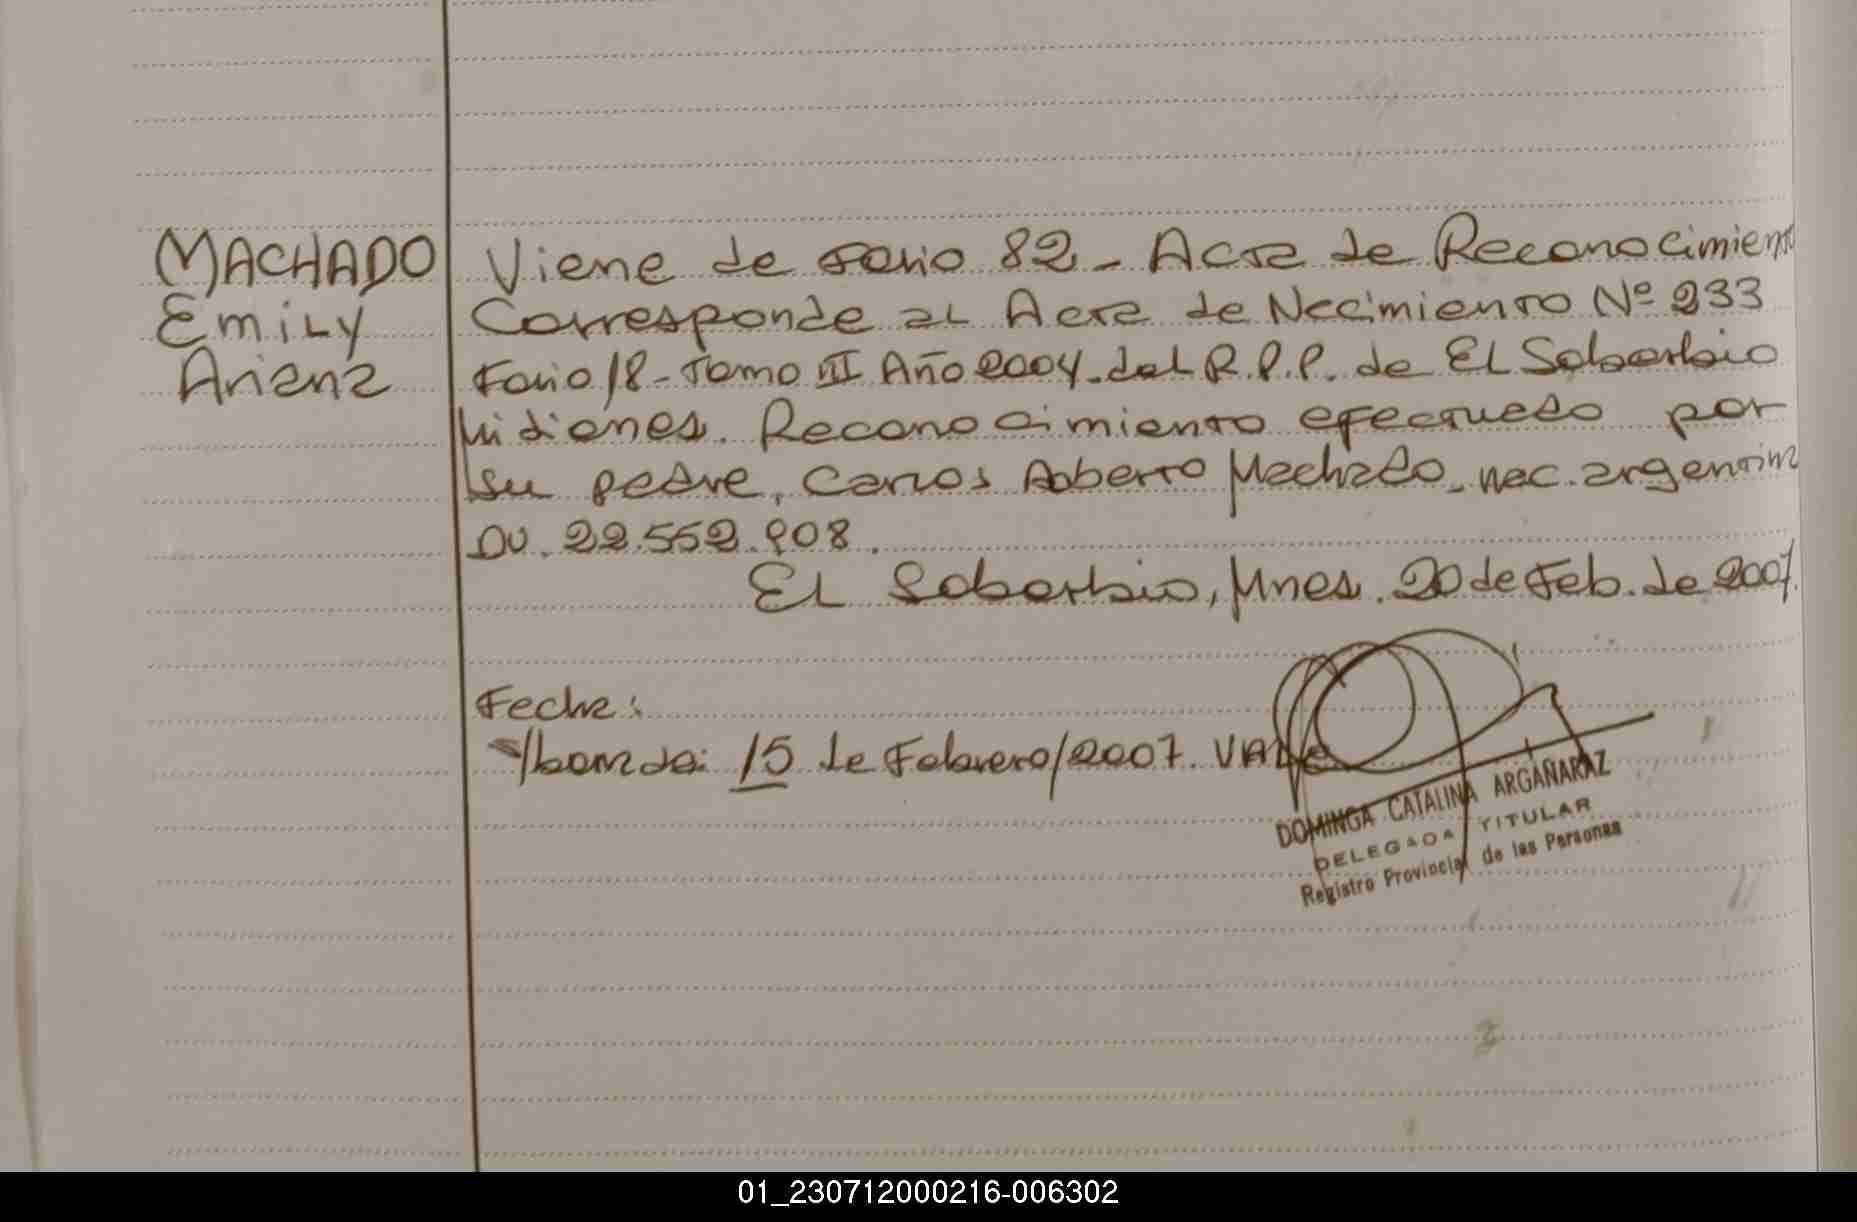 MACHADO
Emily
Ariana
Viene de Folio 82 - Acta de Reconocimiento
Corresponde al Acta de Nacimiento Nº 233
Folio 18 - Tomo III Año 2004. del R.P.P. de El Soberbio
Misiones. Reconocimiento efectuado por
su padre, Carlos Alberto Machado, nac. argentina
DU. 22.552.908.
El Soberbio, Mnes. 20 de Feb. de 2007.
Fecha:
15 de Febrero/2007. VALE
DOMINGA CATALINA ARGAÑARAZ
DELEGADA TITULAR
Registro Provincial de las Personas
01_230712000216-006302